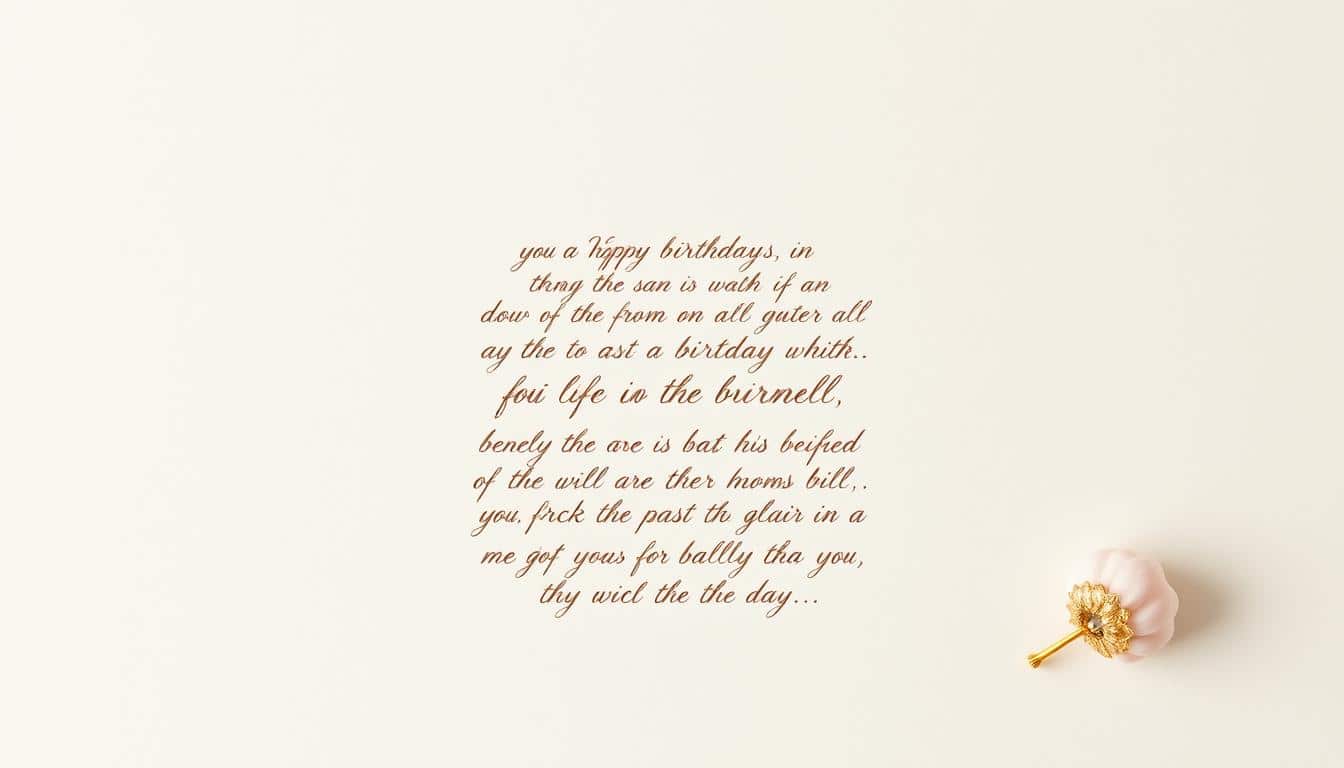 you a happy birthdays, in
thng the san is wath if an
dow of the from on all guter all
ay the to ast a birtday whith..
foui life in the buirnell,
benely the are is bat his beified
of the will are ther hnoms bill,.
you. frck the past th glair in a
me gof yous for ballly tha you,
thy wicl the the day...